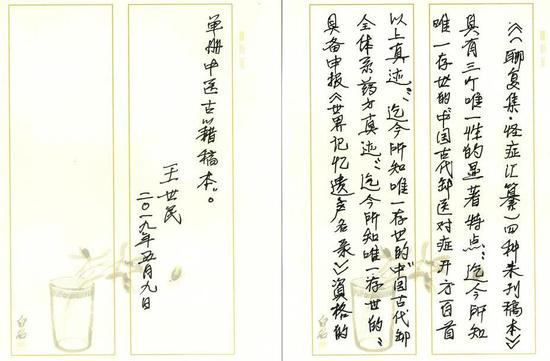 《〈聊复集·怪症汇纂〉四种未刊稿本》
具有三个唯一性的显著特点：“迄今所知
唯一存世的‘中国古代御医对症开方百首
以上真迹’”；“迄今所知唯一存世的‘中国古代御
全体系药方真迹’”；“迄今所知唯一存世的”
具备申报《世界记忆遗产名录》资格的
单册中医古籍稿本”。
王世民
二〇一九年五月九日
白石
白石